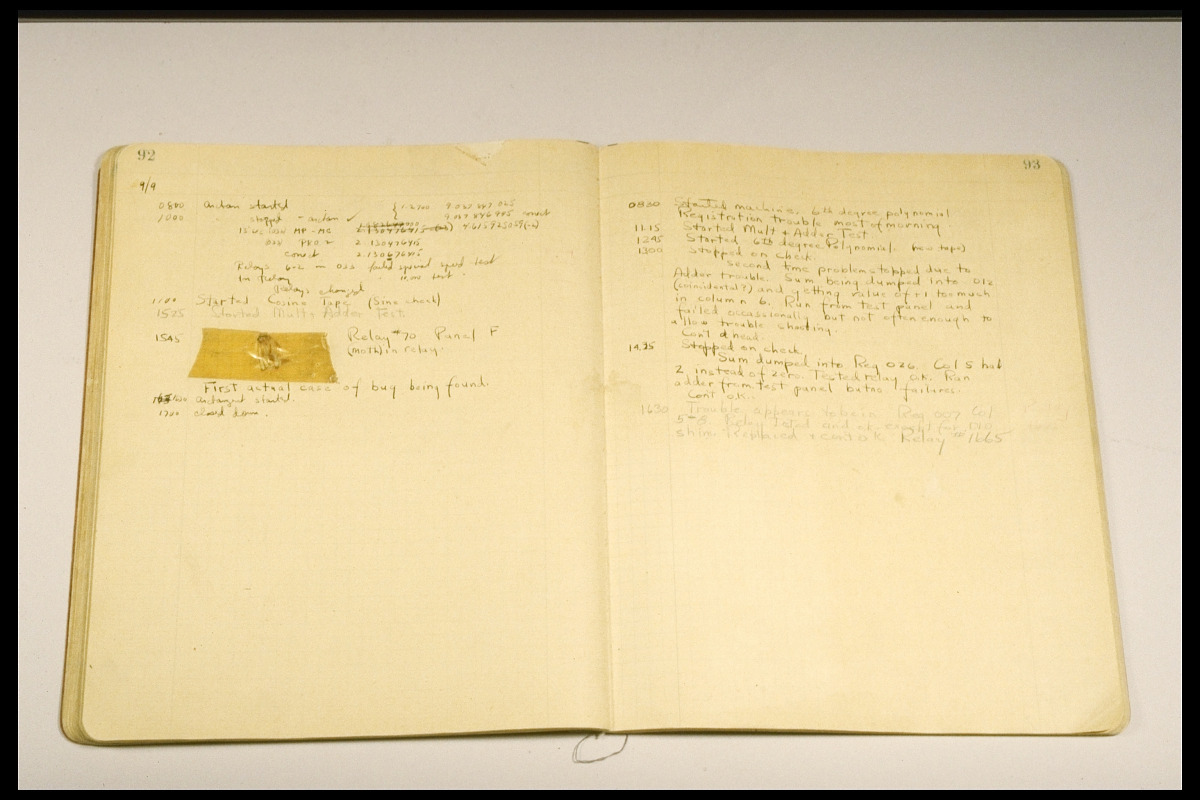 92
9/9
0800 Antan started
1000 " stopped - antan ✓ { 1.2700 9.037 847 025
9.037 846 995 correct
13"UC (032) MP - MC 2.130476415 (-2) 4.615925059 (-2)
033 PRO 2 2.130476415
correct 2.130676415
Relays 6-2 in 033 failed special speed test
In Relay 10,000 test.
Relays changed
1100 Started Cosine Tape (Sine check)
1525 Started Mult + Adder Test.
1545 Relay #70 Panel F
(moth) in relay.
First actual case of bug being found.
1630 antangent started.
1700 closed down.
93
0830 Started machine. 6th degree polynomial
Registration trouble most of morning
11.15 Started Mult + Adder Test
1245 Started 6th degree Polynomial. (new tape)
1300 Stopped on check.
Second time problem stopped due to
Adder trouble. Sum being dumped into 012
(coincidental?) and getting value of +1 too much
in column 6. Run from test panel and
failed occassionally but not often enough to
allow trouble shooting.
Cont ahead.
1425 Stopped on check.
Sum dumped into Reg 026. Col 5 had
2 instead of zero. Tested relay o.k. Ran
adder from test panel but no failures.
Cont o.k.
1630 Trouble appears to be in Reg 007 Col
5-8. Relay tested and ok except for
shim. replaced + cont o.k. Relay #1665